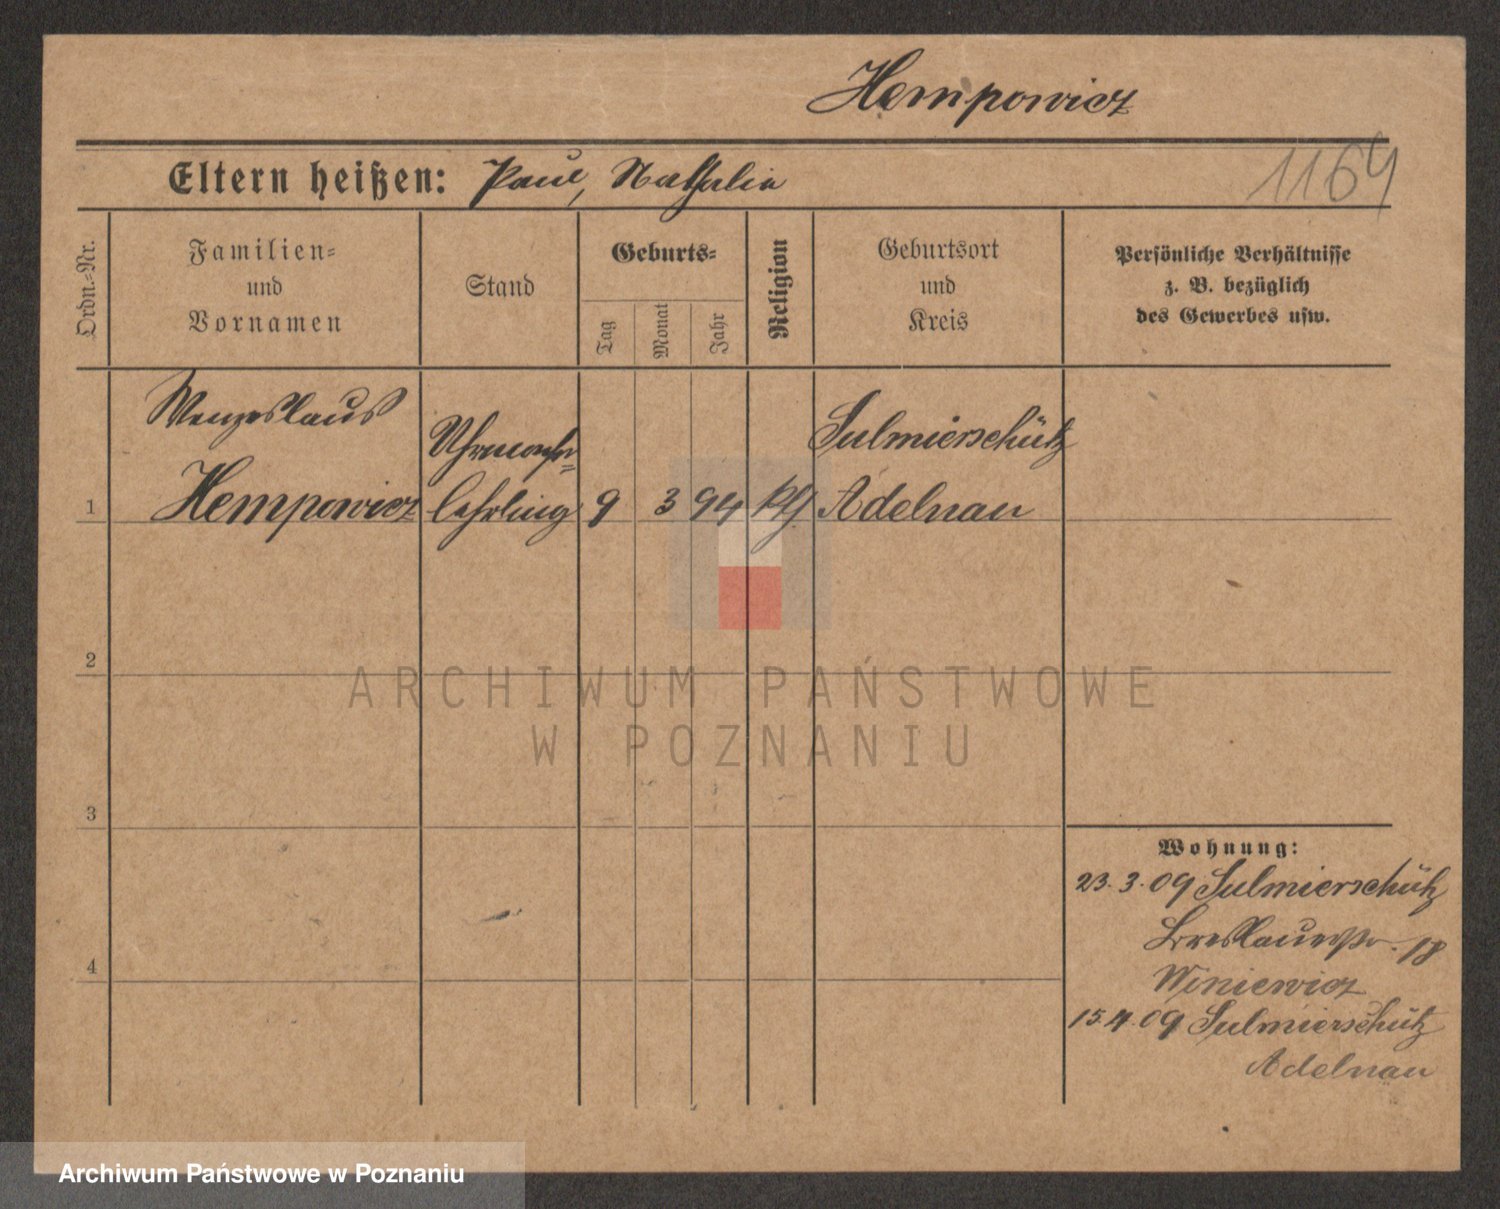 Hempowicz
Eltern heißen: Paul, Nathalia
1164
Ordn.-Nr.
Familien-
und
Vornamen
Stand
Geburts-
Tag
Monat
Jahr
Religion
Geburtsort
und
Kreis
Persönliche Verhältnisse
z. B. bezüglich
des Gewerbes usw.
Wenzeslaus
Uhrmacher-
Sulmierschütz
1 Hempowicz lehrling 9 3 94 kth Adelnau
2
ARCHIWUM PAŃSTWOWE
W POZNANIU
3
Wohnung:
23.3.09 Sulmierschütz
Breslauerstr. 18
4
Winiewicz
15.4.09 Sulmierschütz
Adelnau
Archiwum Państwowe w Poznaniu